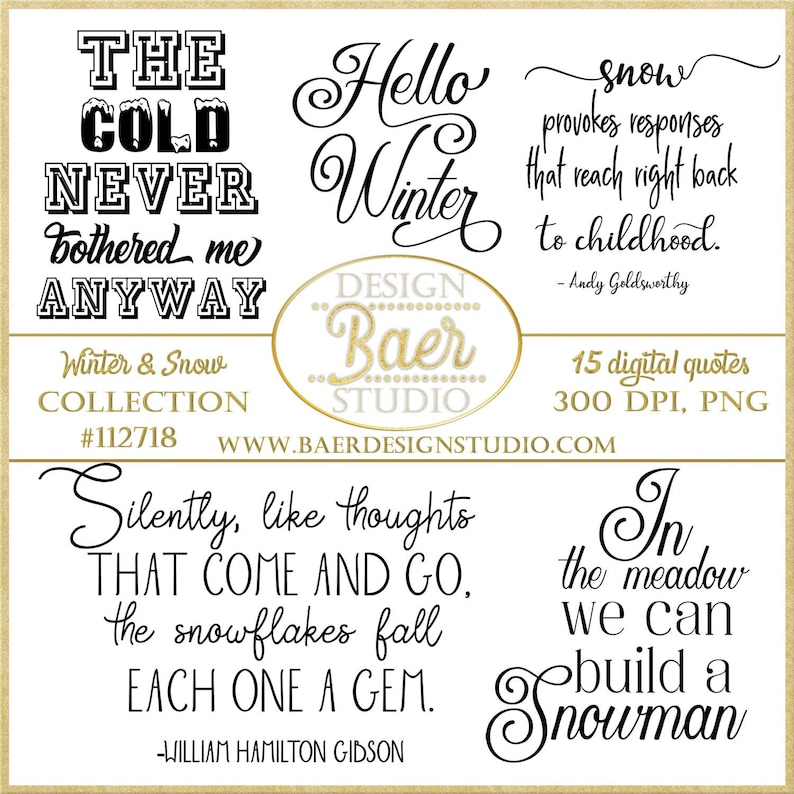 THE
COLD
NEVER
bothered me
ANYWAY
Hello
Winter
snow
provokes responses
that reach right back
to childhood.
- Andy Goldsworthy
DESIGN
Baer
STUDIO
Winter & Snow
COLLECTION
#112718
15 digital quotes
300 DPI, PNG
WWW.BAERDESIGNSTUDIO.COM
Silently, like thoughts
THAT COME AND GO,
the snowflakes fall
EACH ONE A GEM.
-WILLIAM HAMILTON GIBSON
In
the meadow
we can
build a
Snowman